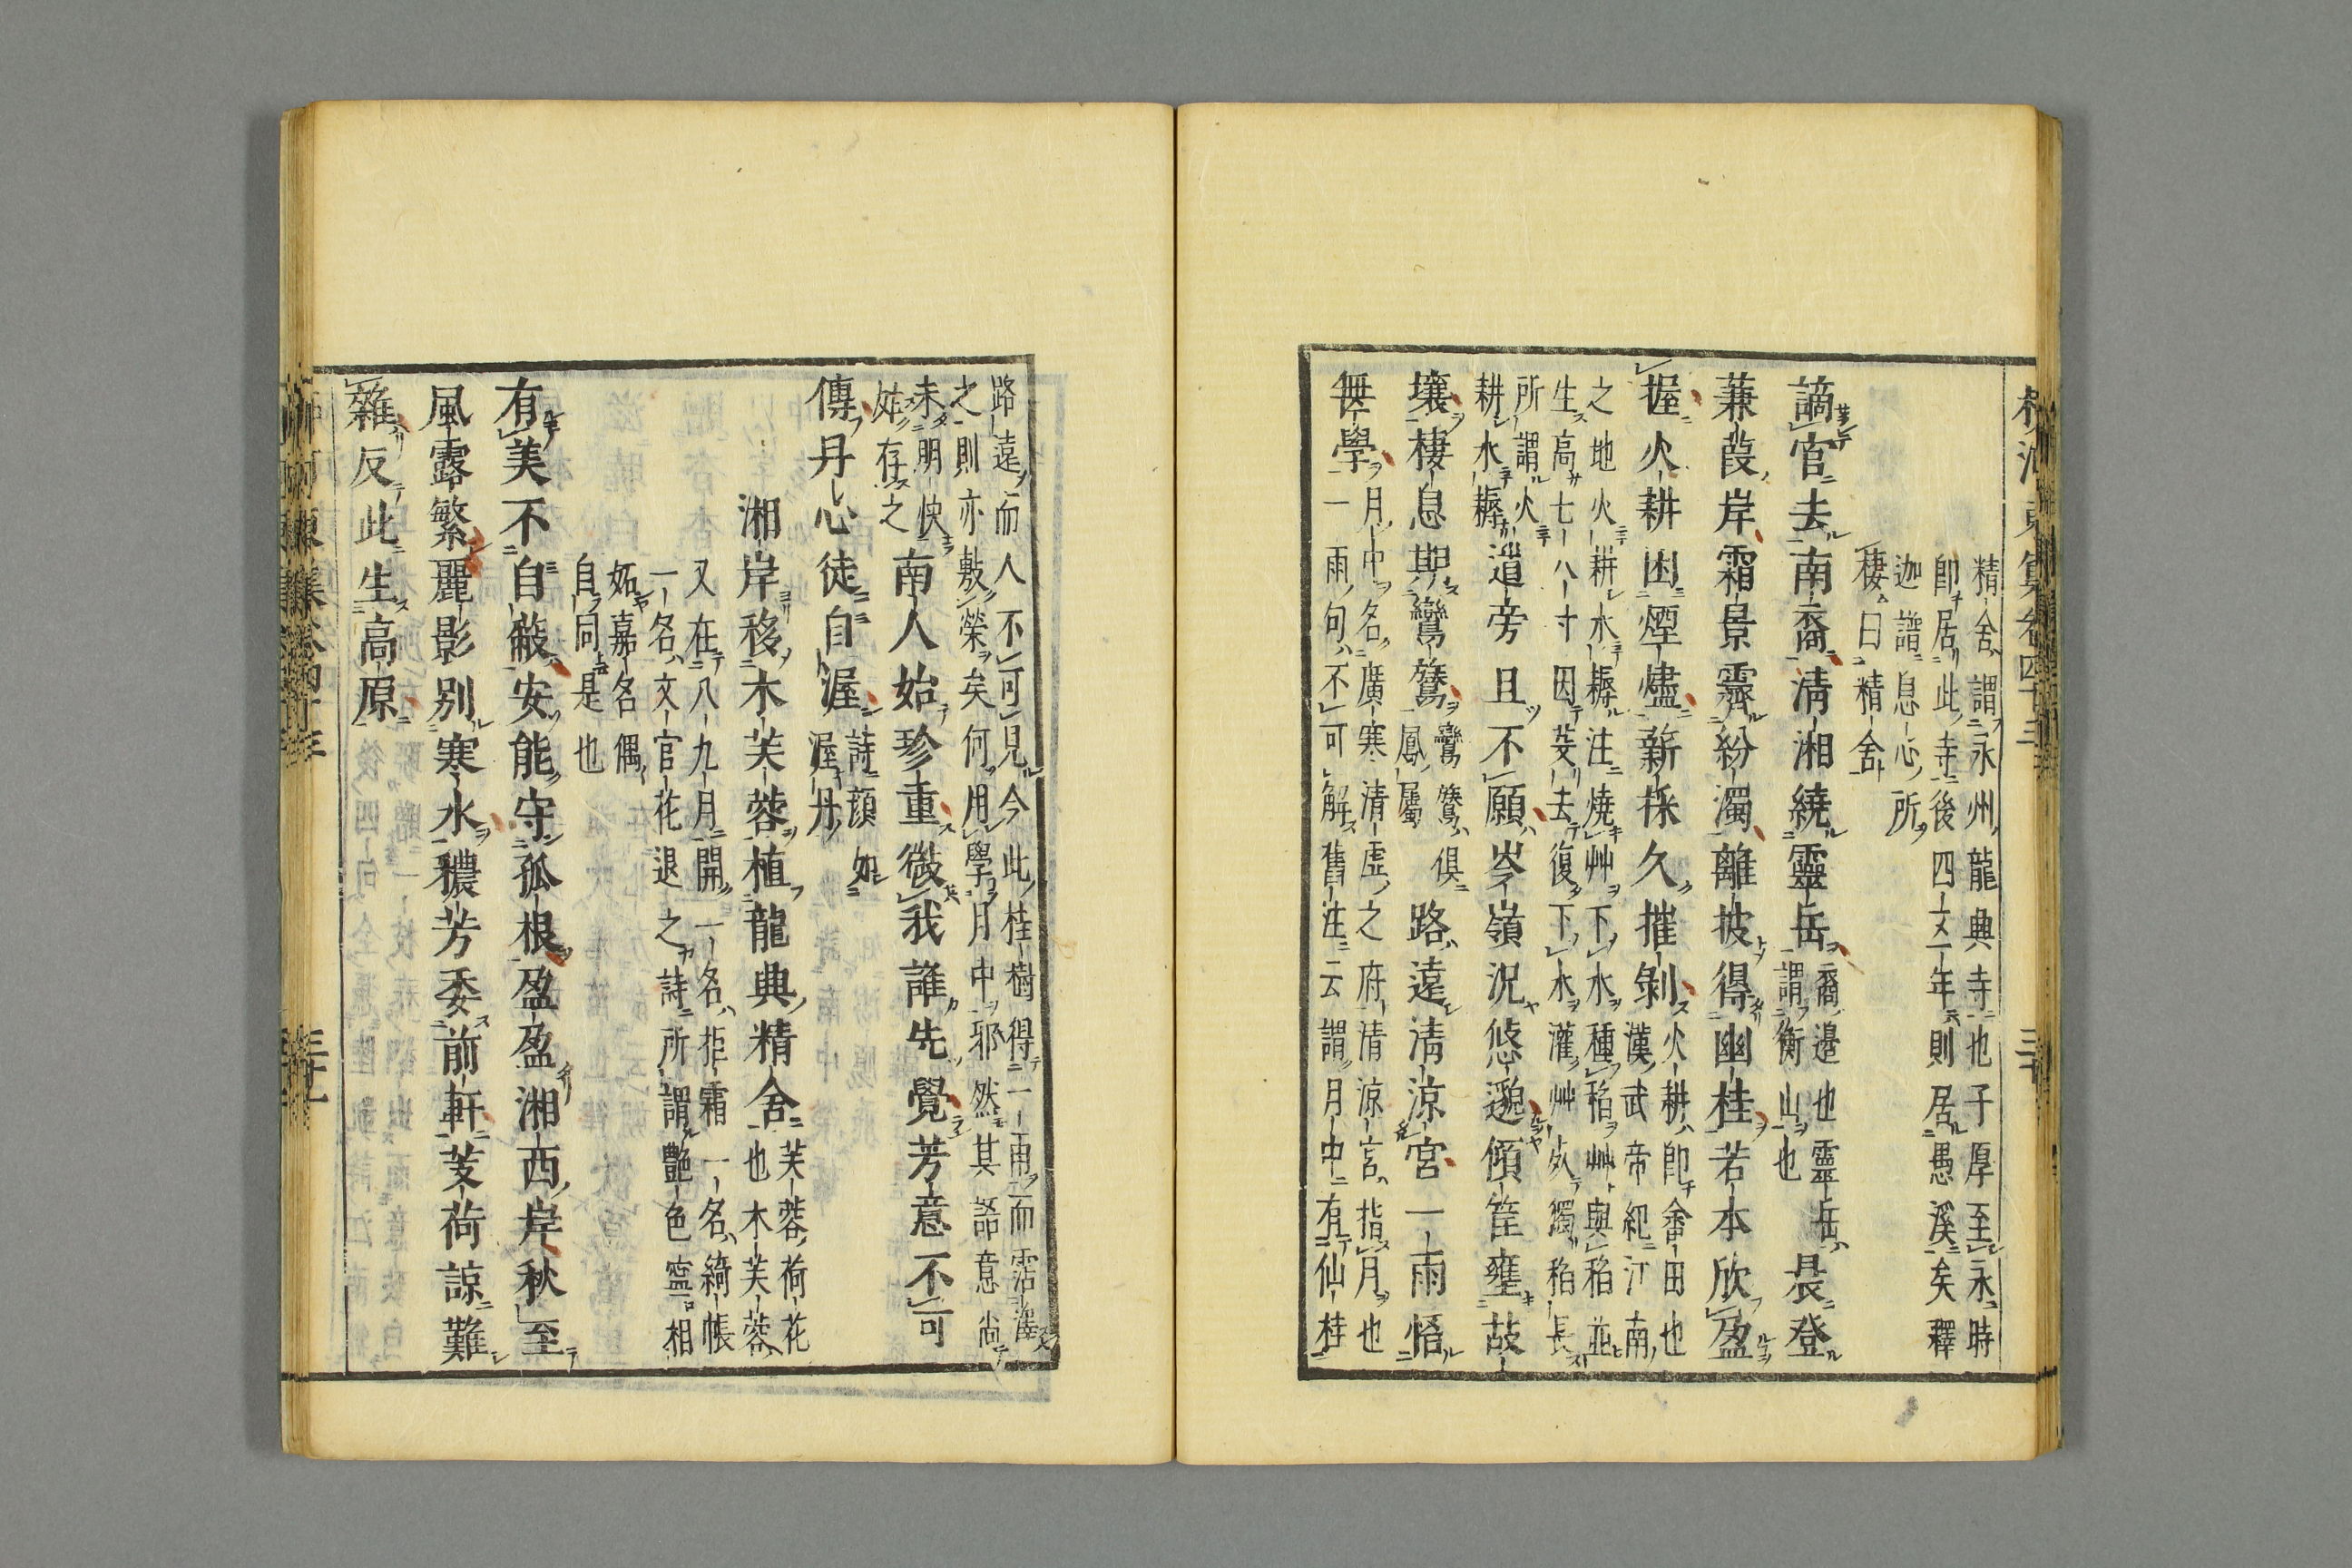 精舍謂永州龍典寺也子厚至永時
即居此寺後四五年則居愚溪矣釋
迦譜息心所
棲曰精舍
謫官去南裔清湘繞靈岳
裔邉也靈岳
謂衡山也
晨登
蒹葭岸霜景霽紛濁離披得幽桂若本欣盈
握火耕困煙燼薪採久摧剝
火耕即畬田也
漢武帝紀江南
之地火耕水耨注燒艸下水種稻艸與稻並
生高七八寸因芟去復下水灌艸死獨稻長
所謂火
耕水耨
道旁且不願岑嶺況悠邈傾筐壅故
壤棲息期鸞鷟
鸞鷟俱
鳳屬
路遠清涼宮一雨悟
無學
月中名廣寒清虛之府清涼言指月也
一雨句不可解舊注云謂月中有仙桂
路遠而人不可見今此桂樹得一雨而霑澤
之則亦敷榮矣何用學月中邪然其語意尚
未明快
姑存之
南人始珍重微我誰先覺芳意不可
傳丹心徒自渥
詩顏如
渥丹
湘岸移木芙蓉植龍典精舍
芙蓉荷花
也木芙蓉
又在八九月開一名拒霜一名綺帳
一名文官花退之詩所謂艷色寧相
妬嘉名偶
自同是也
有美不自蔽安能守孤根盈盈湘西岸秋至
風露繁麗影別寒水穠芳委前軒芰荷諒難
雜反此生高原